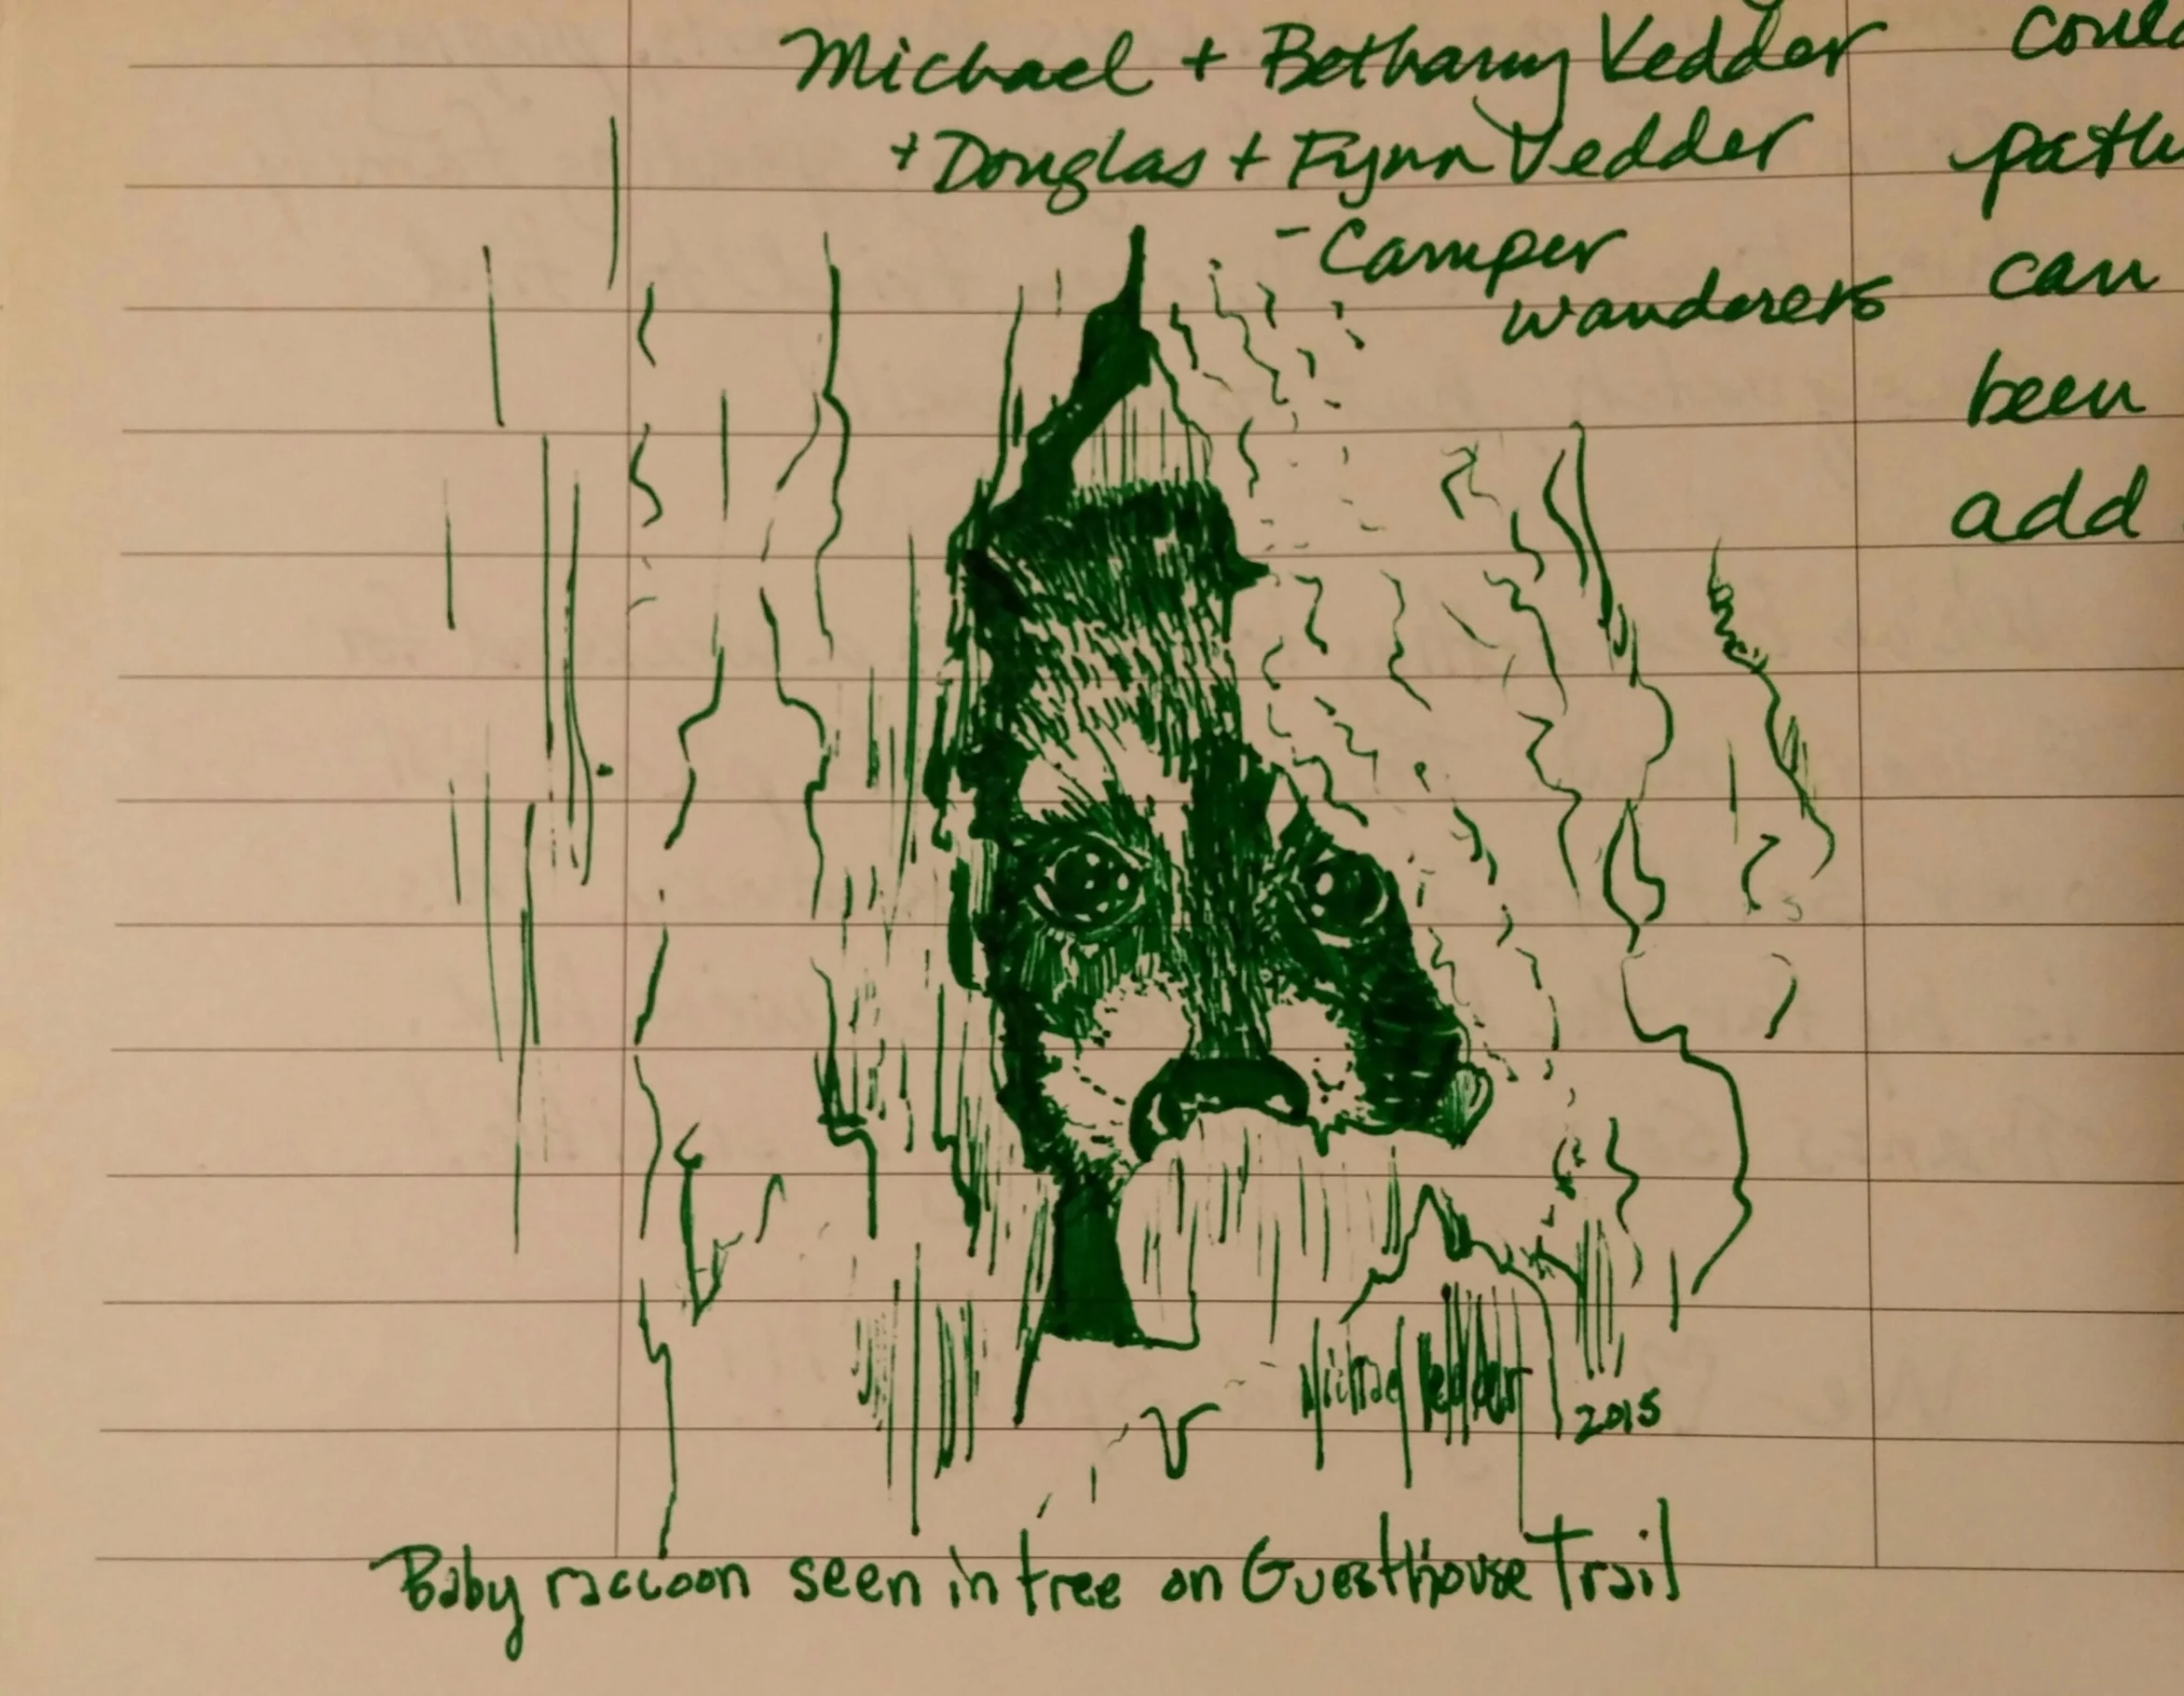 Michael + Bethany Vedder
+ Douglas + Fynn Vedder
- Camper
wanderers
could
path
can
been
add
Michael Vedder
2015
Baby raccoon seen in tree on Guesthouse Trail